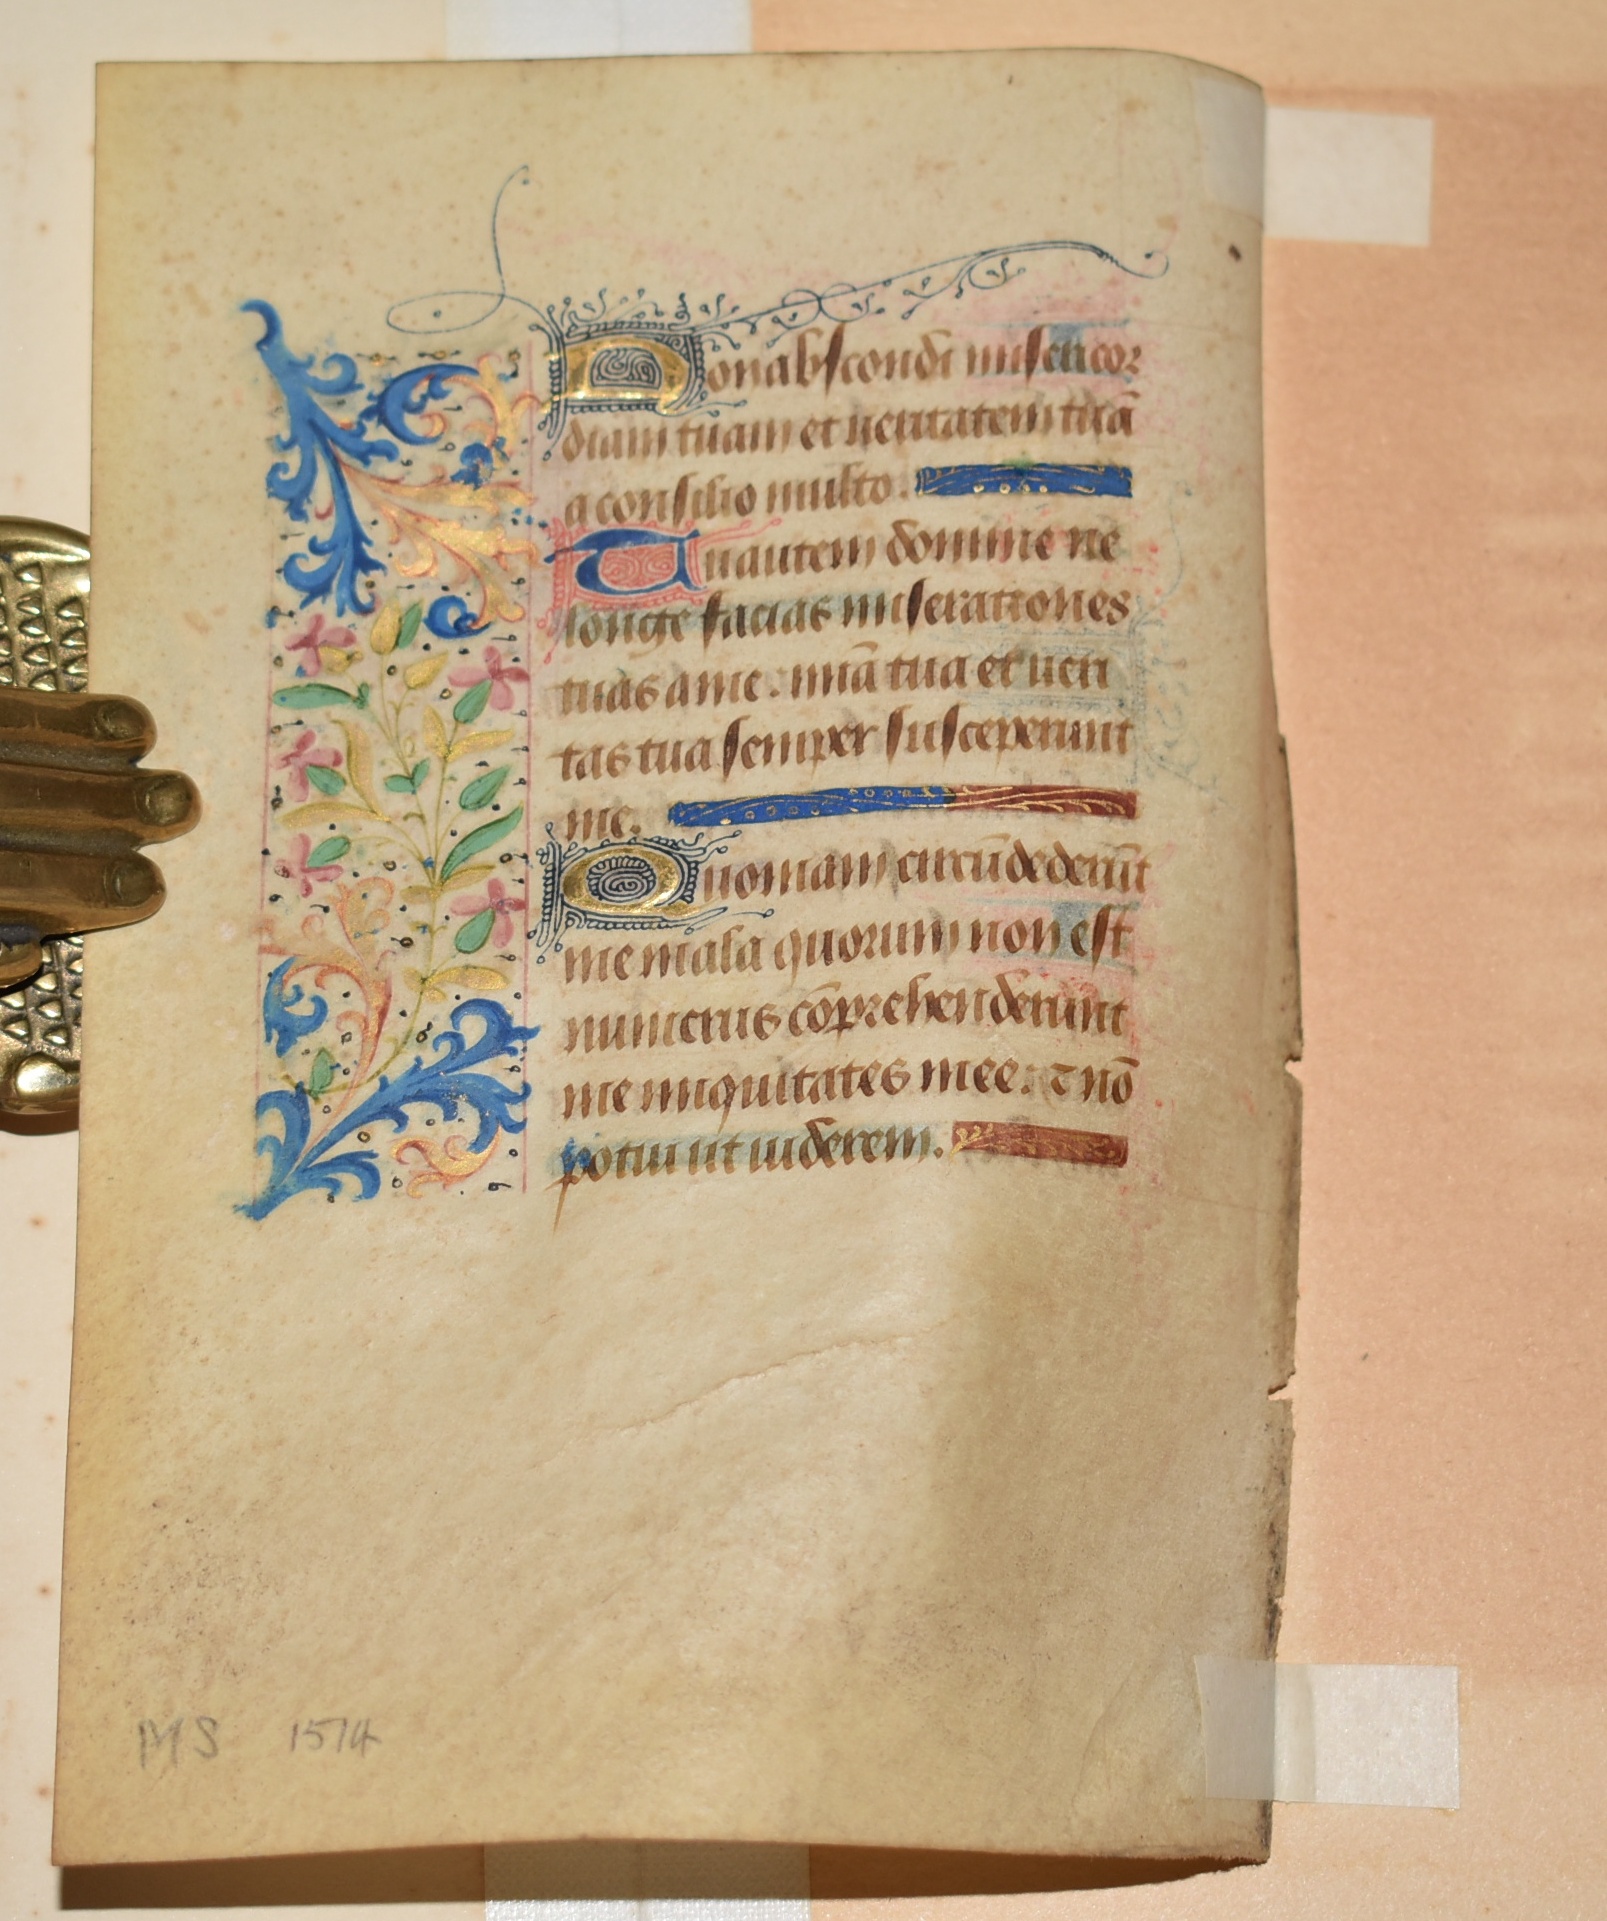 Non abscondi misericor
diam tuam et ueritatem tuā
a consilio multo.
Tu autem domine ne
longe facias miserationes
tuas a me. miā tua et ueri
tas tua semper susceperunt
me.
Quoniam circūdederūt
me mala quorum non est
numerus cōprehenderunt
me iniquitates mee. ⁊ nō
potui ut uiderem.
MS 1514